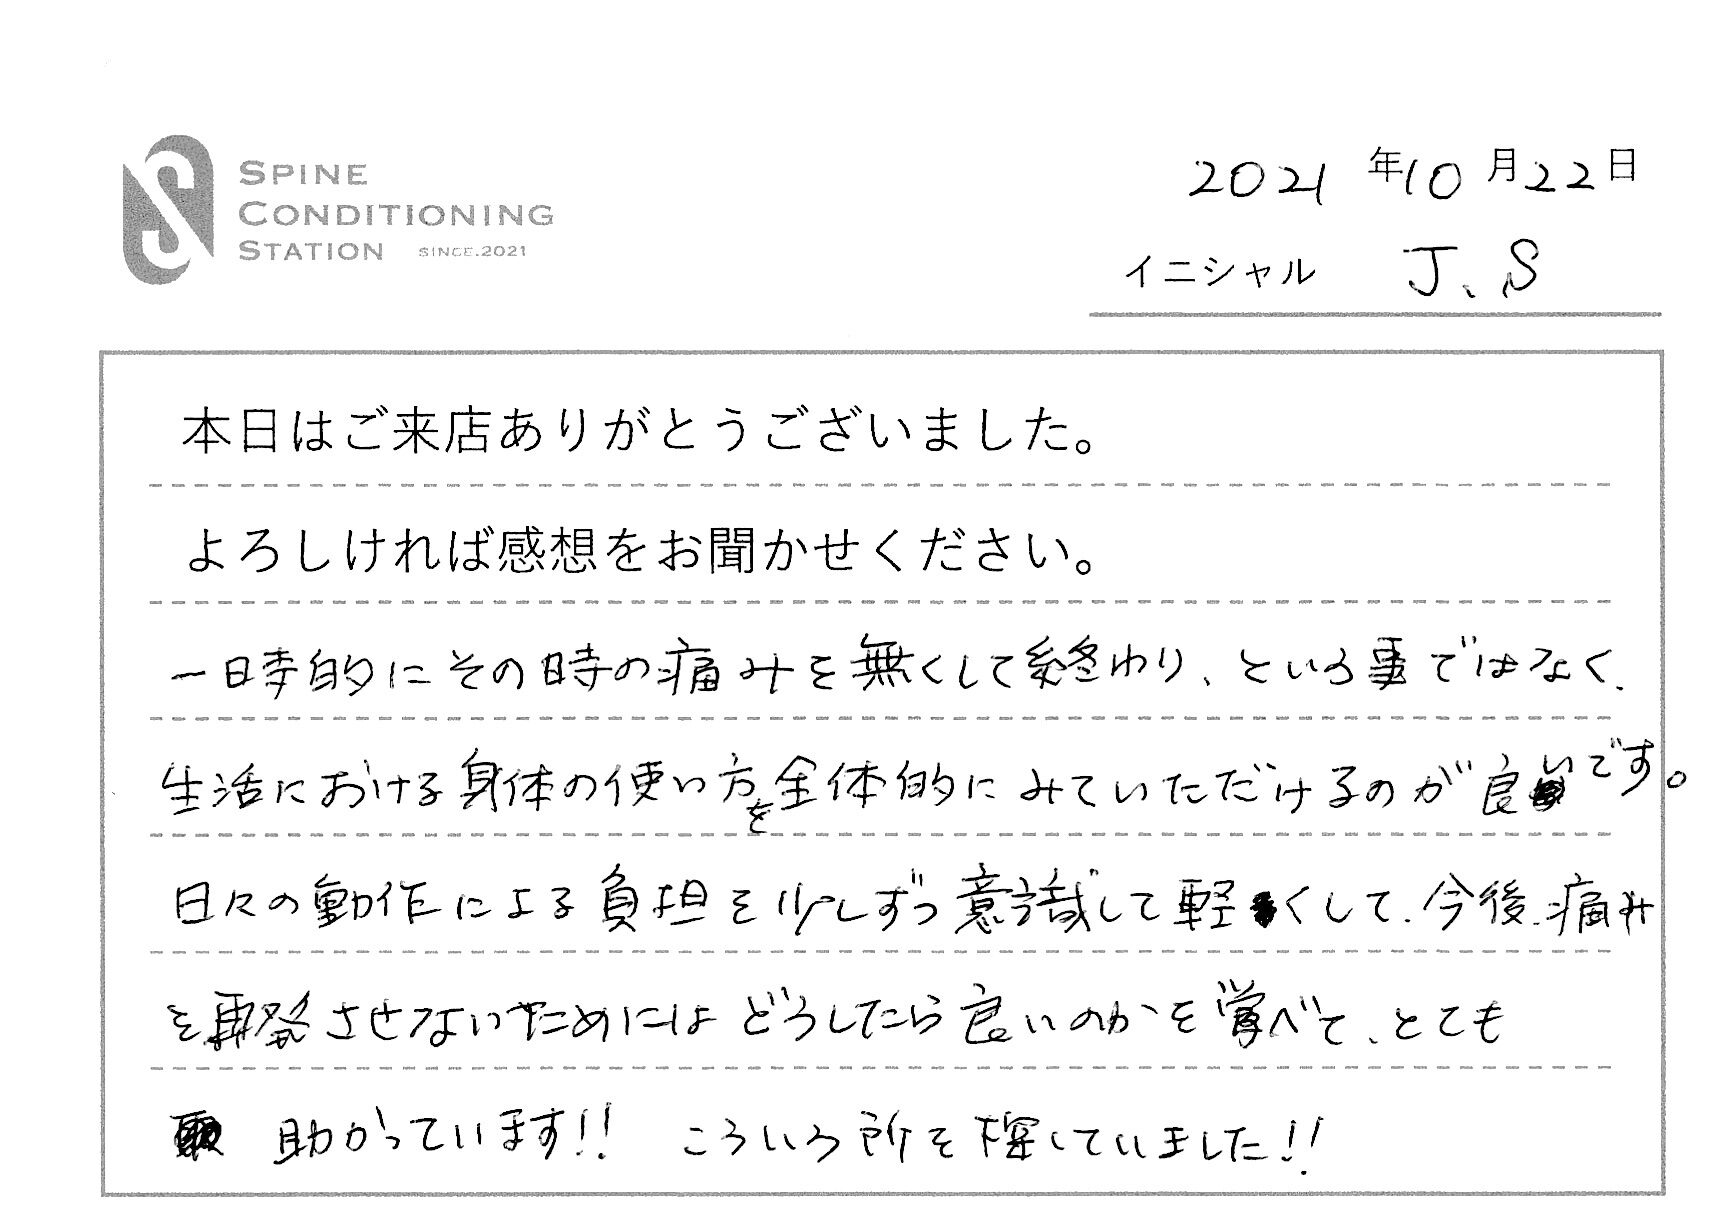 SPINE
CONDITIONING
STATION SINCE.2021
2021年10月22日
イニシャル J.S
本日はご来店ありがとうございました。
よろしければ感想をお聞かせください。
一時的にその時の痛みを無くして終わり、という事ではなく、
生活における身体の使い方を全体的にみていただけるのが良いです。
日々の動作による負担を少しずつ意識して軽くして、今後、痛み
を再発させないためにはどうしたら良いのかを学べて、とても
助かっています!! こういう所を探していました!!